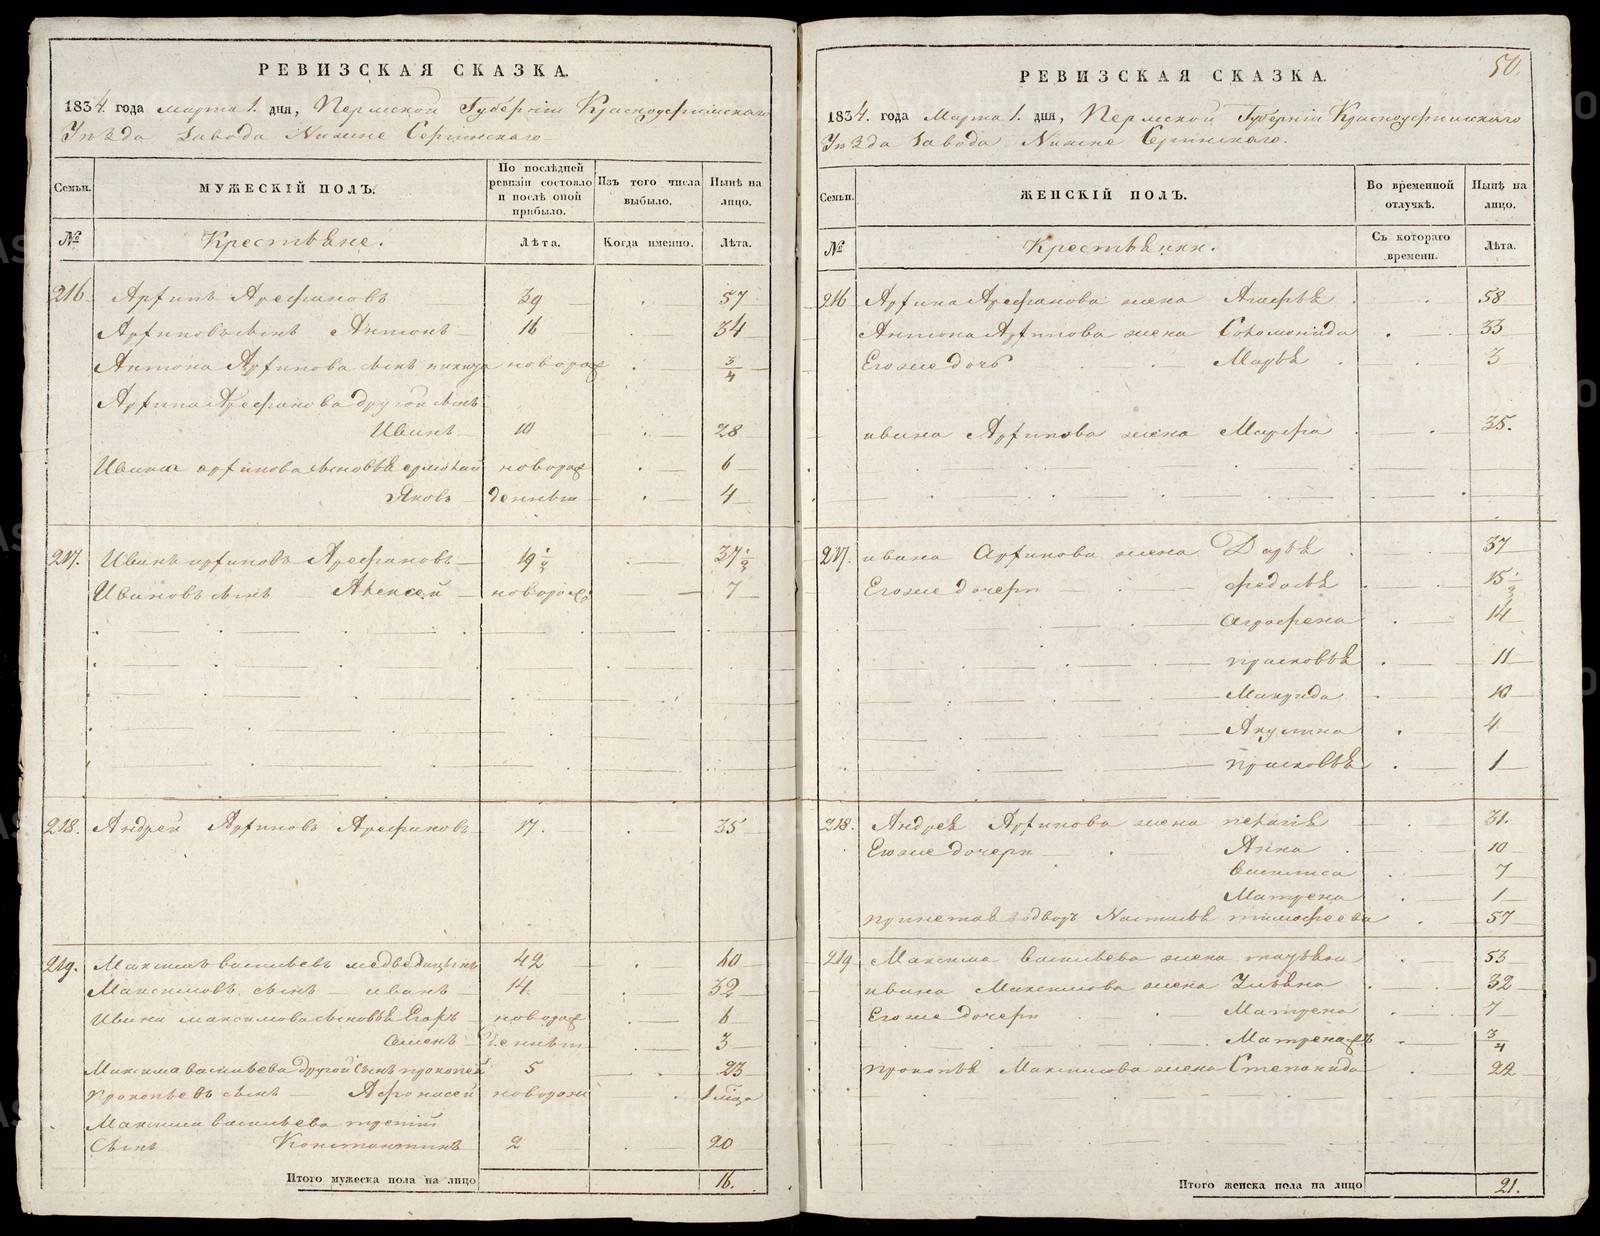 РЕВИЗСКАЯ СКАЗКА.
1834. года марта 1. дня, Пермской Губернiи Красноуфимскаго
Уѣзда Завода Нижне Сергинскаго
Семьи.
МУЖЕСКIЙ ПОЛЪ.
По послѣдней ревизiи состояло и послѣ оной прибыло.
Изъ того числа выбыло.
Нынѣ на лицо.
№
Крестьяне.
Лѣта.
Когда именно.
Лѣта.
216. Арфипъ Арефановъ 39 57
Арфиповъ сынъ Антонъ 16 34
Антона Арфипова сынъ новорож 3/4
Арфипа Арефанова другой сынъ
Иванъ 10 28
Ивана арфипова сыновья новорож 6
Яковъ денныи 4
217. Иванъ арфиповъ Арефановъ 19 1/2 37 1/2
Ивановъ сынъ Алексей новорож 7
218. Андрей Арфиповъ Арефановъ 17. 35
219. Максимъ васильевъ медведицынъ 42 60
Максимовъ сынъ иванъ 14. 32
Ивана максимова сыновья Егоръ новорож 6
Семенъ денныи 3
Максима васильева другой сынъ прокопей 5 23
Прокопьевъ сынъ Афонасей новорожд
Максима васильева третiй
Сынъ Константинъ 2 20
Итого мужеска пола на лицо 16.
50.
РЕВИЗСКАЯ СКАЗКА.
1834. года Марта 1. дня, Пермской Губернiи Красноуфимскаго
Уѣзда Завода Нижне Сергинскаго.
Семьи.
ЖЕНСКIЙ ПОЛЪ.
Во временной отлучкѣ.
Нынѣ на лицо.
№
Крестьянки.
Съ котораго времени.
Лѣта.
216 Арфипа Арефанова жена Агафья 58
Антона Арфипова жена Соломонида 33
Егоже дочь Марья 3
ивана Арфипова жена Марфа 35.
217. ивана Арфипова жена Дарья 37
Егоже дочери федосья 15 1/2
Аграфена 14
прасковья 11
Макрида 10
Акулина 4
прасковья 1
218. Андрея Арфипова жена пелагiя 31.
Егоже дочери Анна 10
Василиса 7
Матрена 1
Настасья тимофеева 57
219 Максима васильева жена татьяна 53
ивана Максимова жена Ульяна 32
Егоже дочери Матрена 7
Матрена 3/4
прокопья Максимова жена Степанида 22
Итого женска пола на лицо 21.
METRIKI.GASO-URAL.RU